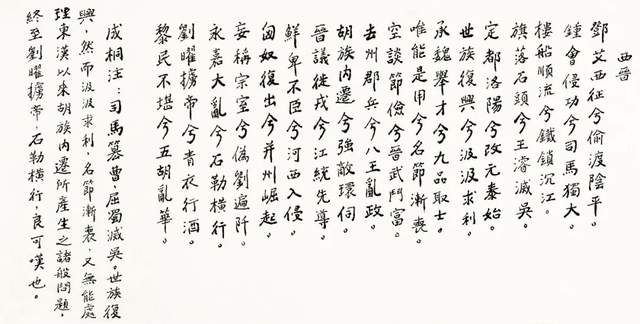 西晉
鄧艾西征兮偷渡陰平。
鍾會侵功兮司馬獨大。
樓船順流兮鐵鎖沉江。
旗落石頭兮王濬滅吳。
定都洛陽兮改元泰始。
世族復興兮汲汲求利。
承魏舉才兮九品取士。
唯能是用兮名節漸喪。
空談節儉兮晉武鬥富。
去州郡兵兮八王亂政。
胡族内遷兮強敵環伺。
晉議徙戎兮江統先導。
鮮卑不臣兮河西入侵。
匈奴復出兮并州崛起。
妄稱宗室兮偽劉遍阡。
永嘉大亂兮石勒橫行。
劉曜擄帝兮青衣行酒。
黎民不堪兮五胡亂華。
成桐注：司馬篡曹，屈蜀滅吳。世族復
興，然而汲汲求利，名節漸喪，又無能處
理東漢以來胡族内遷所產生之諸般問題，
終至劉曜擄帝，石勒橫行，良可嘆也。